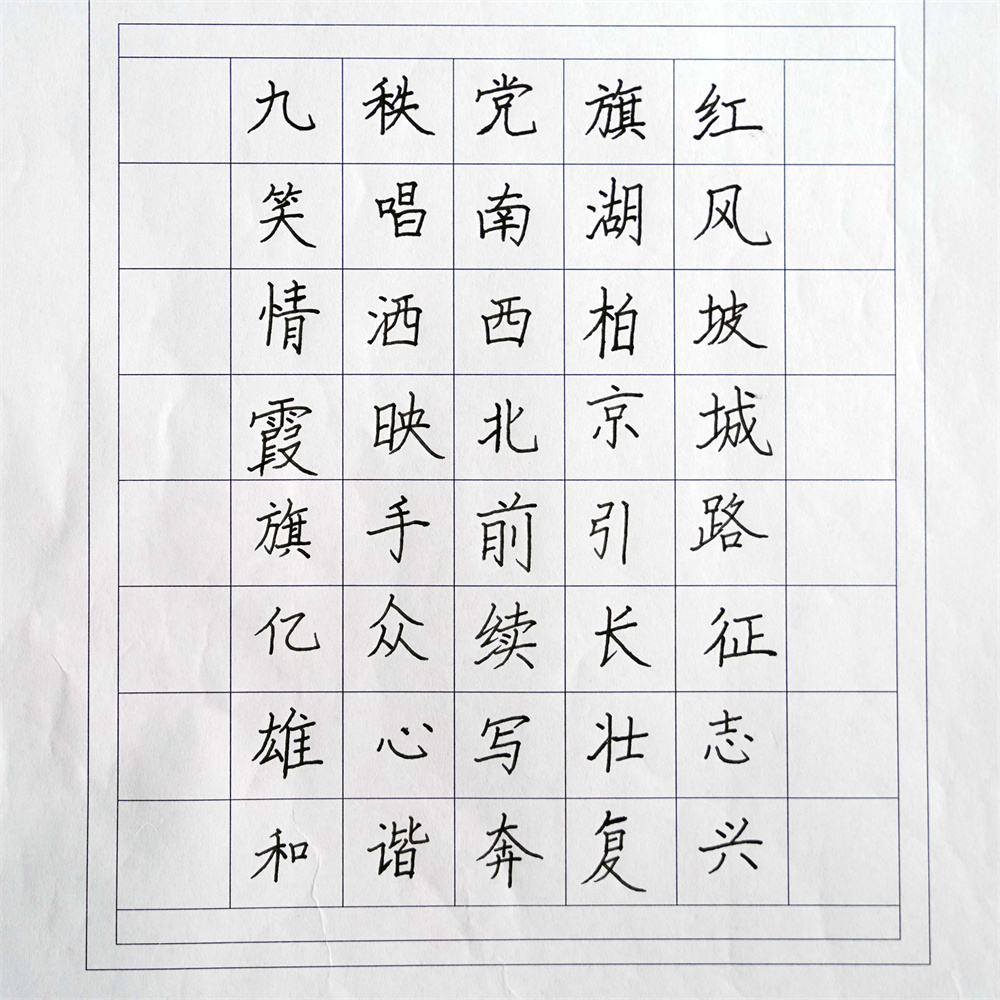 九秩党旗红
笑唱南湖风
情洒西柏坡
霞映北京城
旗手前引路
亿众续长征
雄心写壮志
和谐奔复兴